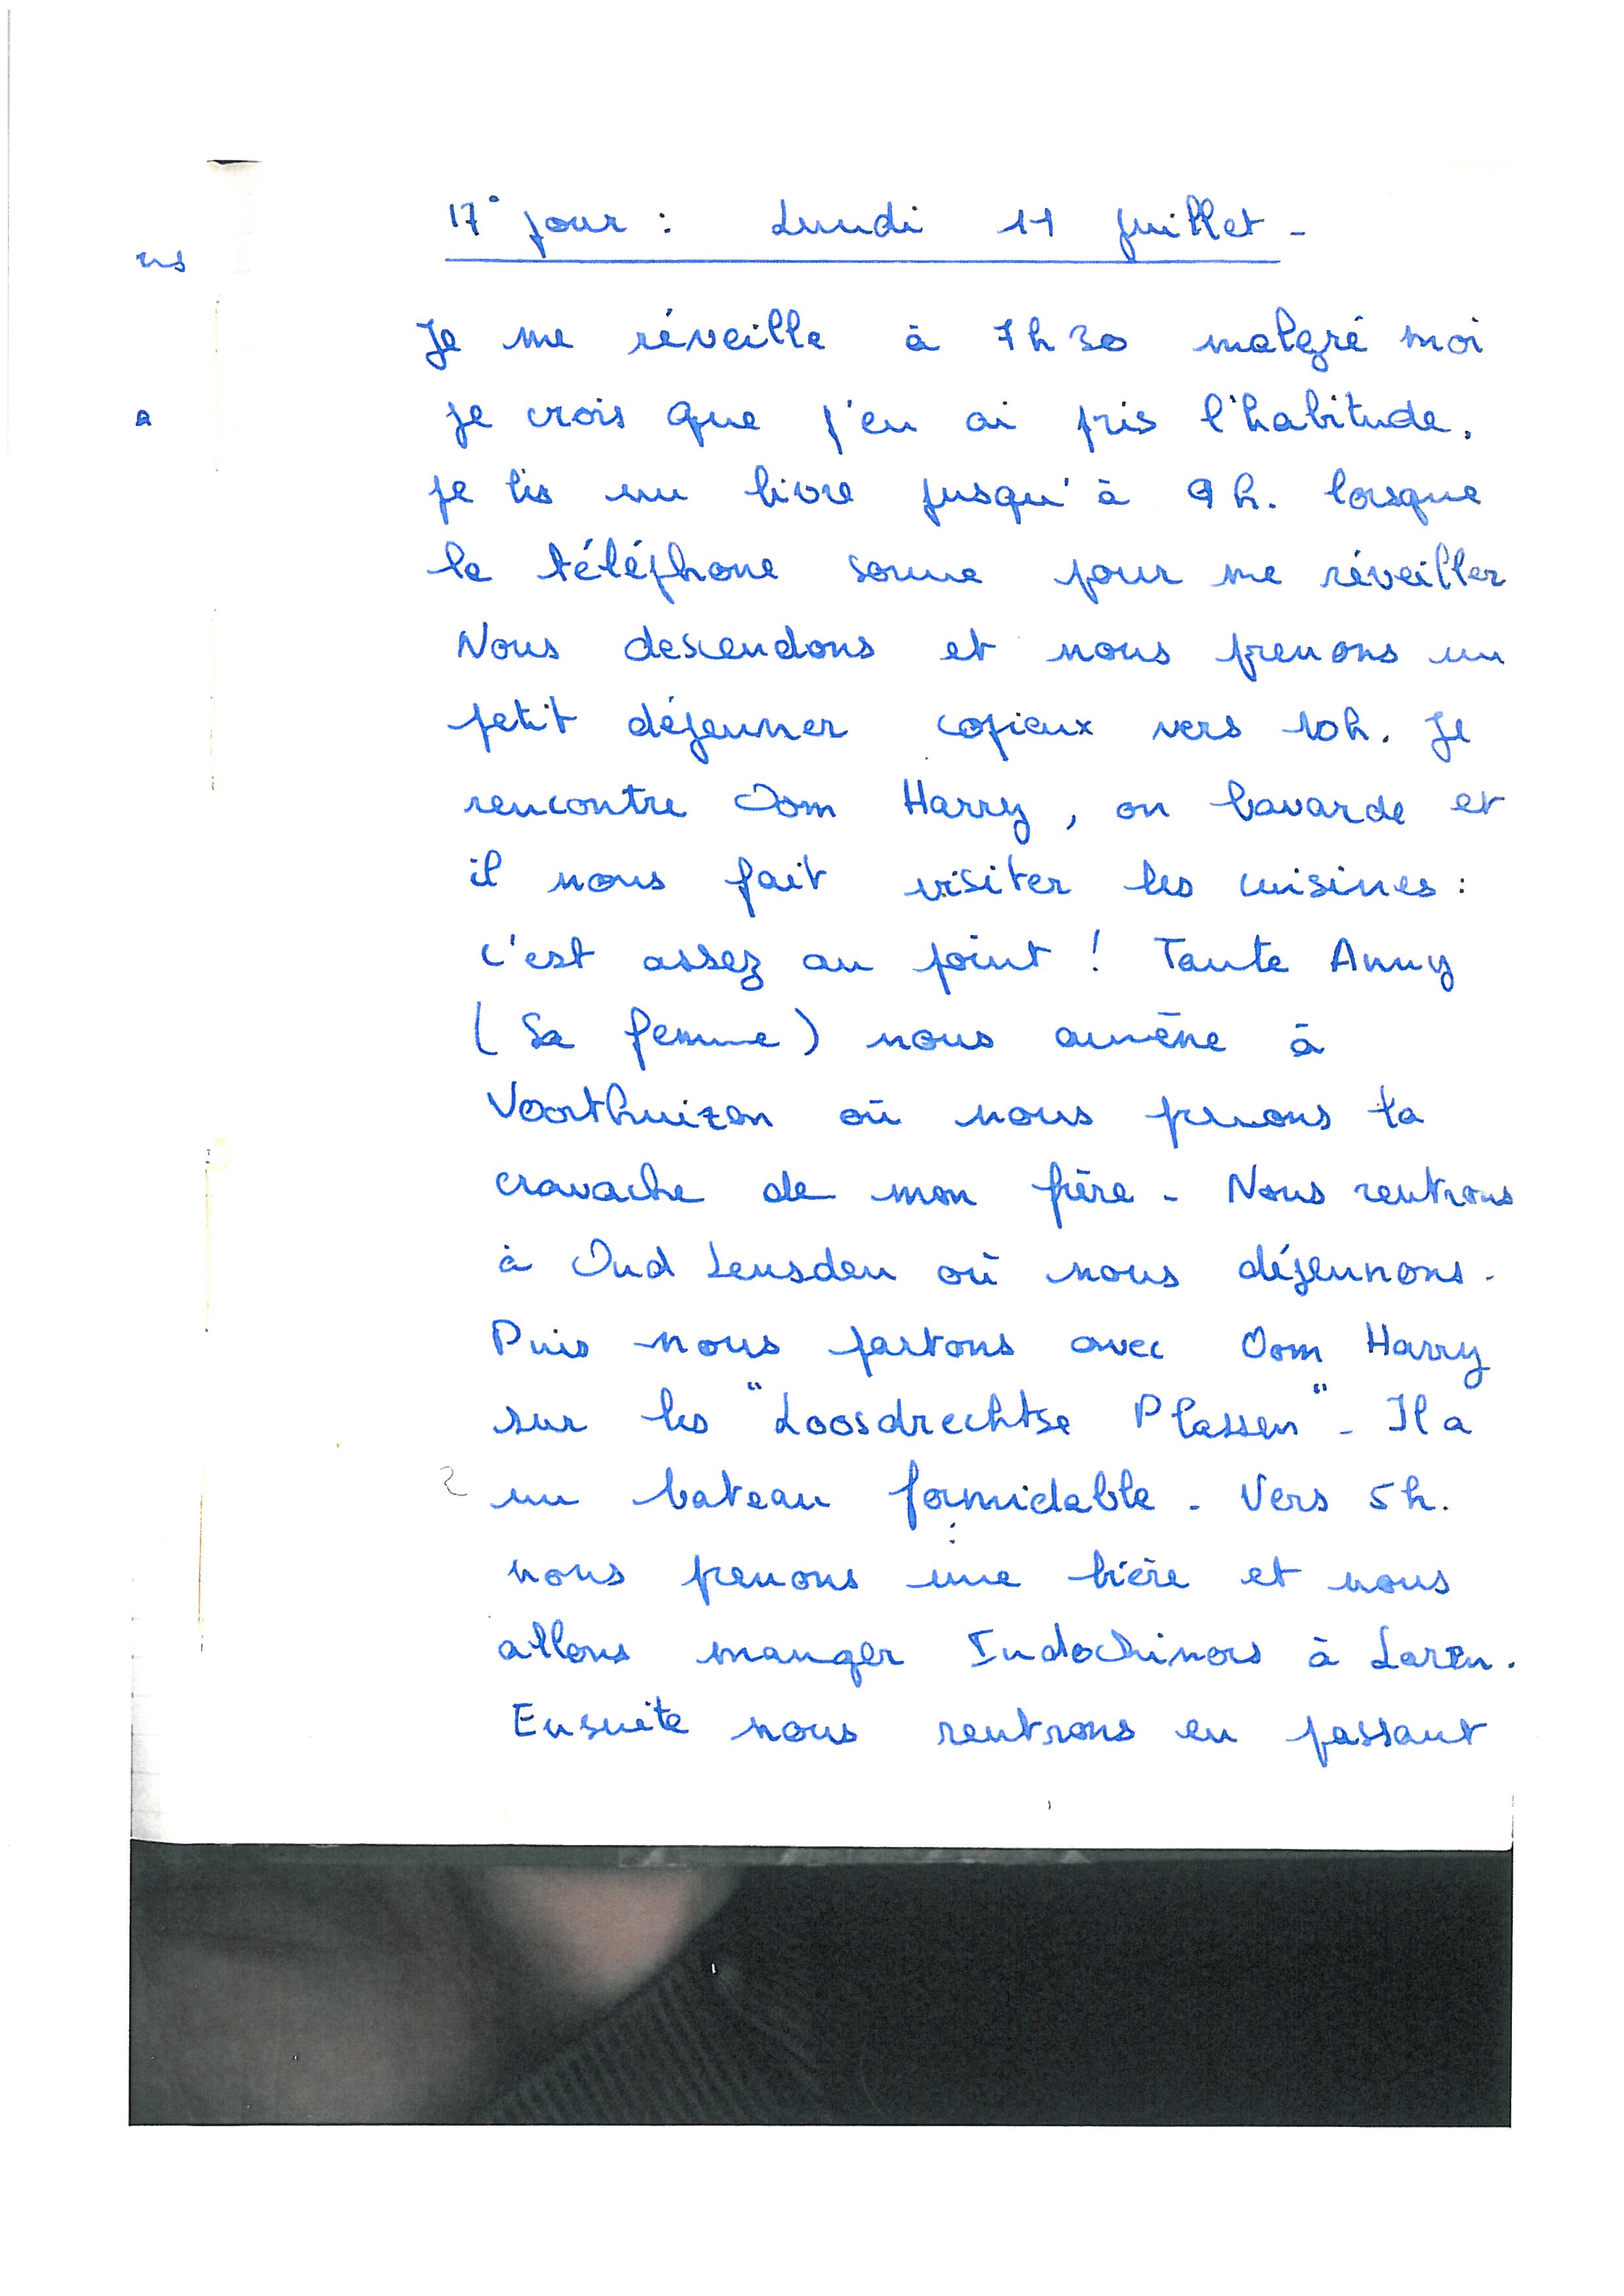 17° jour : Lundi 11 juillet -
ns
Je me réveille à 7h30 malgré moi
a
je crois que j'en ai pris l'habitude.
je lis un livre jusqu'à 9h. lorsque
le téléphone sonne pour me réveiller
Nous descendons et nous prenons un
petit déjeuner copieux vers 10h. Je
rencontre Oom Harry, on bavarde et
il nous fait visiter les cuisines :
c'est assez au point ! Tante Anny
(Sa femme) nous amène à
Voorthuizen où nous prenons la
cravache de mon frère - Nous rentrons
à Oud Leusden où nous déjeunons -
Puis nous partons avec Oom Harry
sur les "Loosdrechtse Plassen" - Il a
un bateau formidable - Vers 5h.
nous prenons une bière et nous
allons manger Indochinois à Laren.
Ensuite nous rentrons en passant